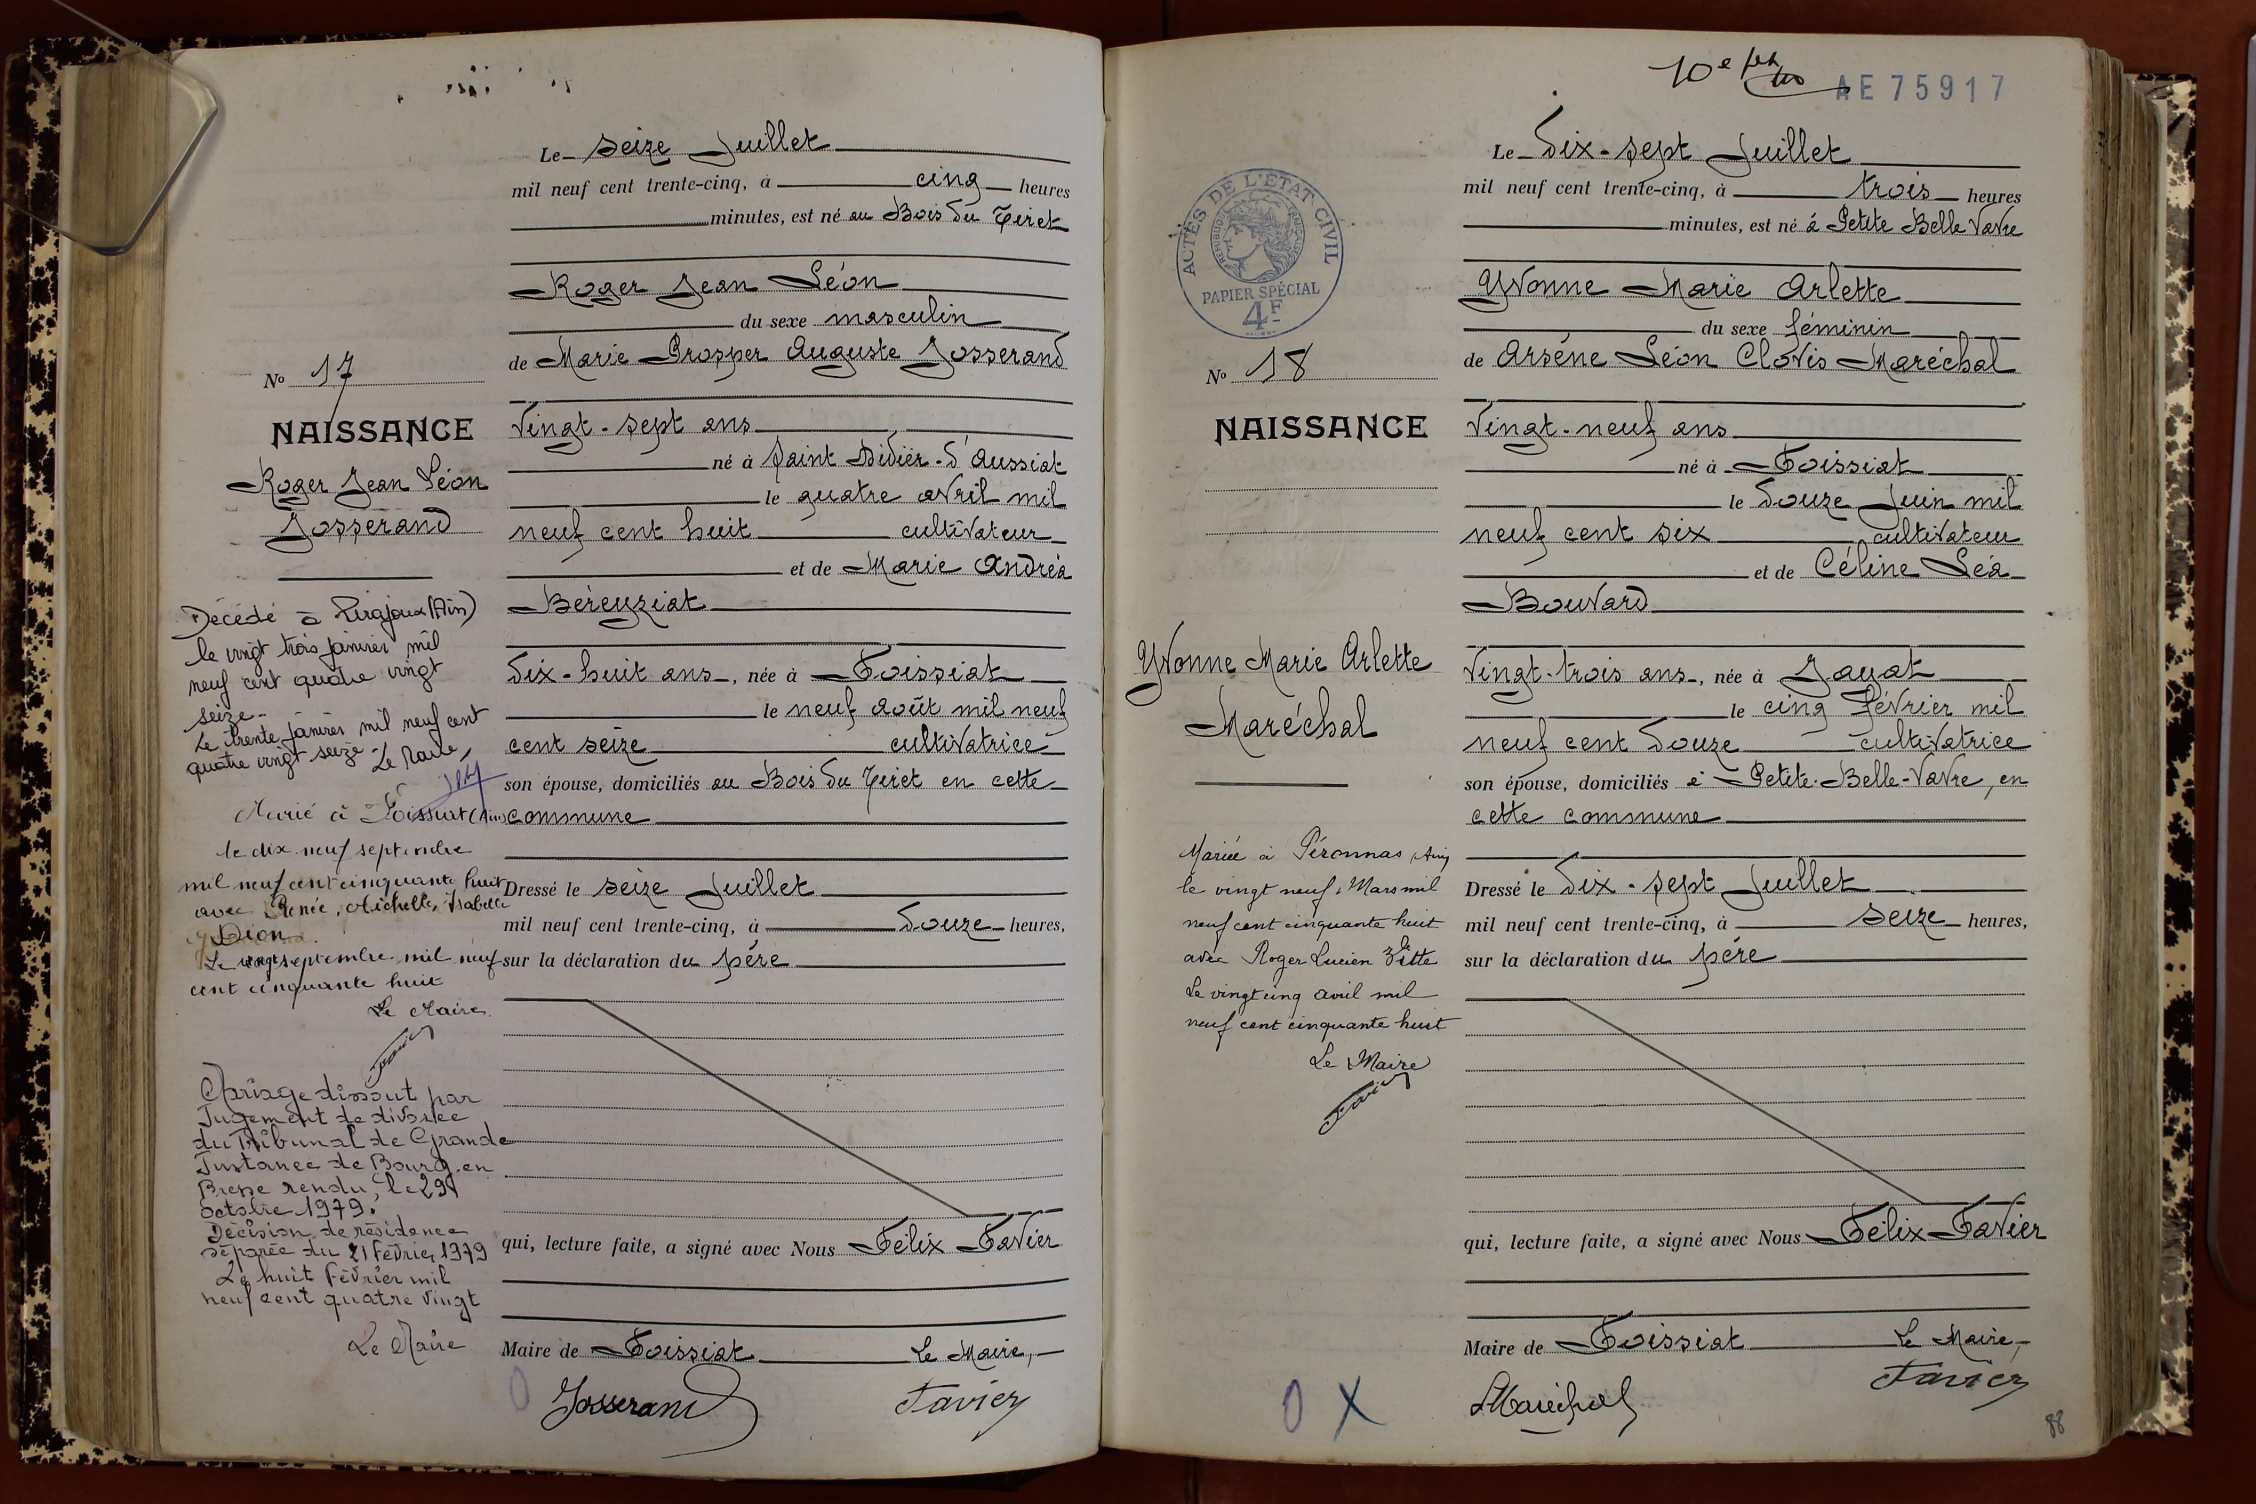 Le seize Juillet
mil neuf cent trente-cinq, à cinq heures
minutes, est né au Bois du Tiret
Roger Jean Léon
du sexe masculin
de Marie Prosper Auguste Josserand
Vingt-sept ans
né à Saint Didier-d'Aussiat
le quatre avril mil
neuf cent huit cultivateur
et de Marie Andréa
Béreyziat
Dix-huit ans, née à Foissiat
le neuf août mil neuf
cent seize cultivatrice
son épouse, domiciliés au Bois du Tiret en cette
commune
Dressé le seize Juillet
mil neuf cent trente-cinq, à douze heures,
sur la déclaration du père
qui, lecture faite, a signé avec Nous Félix Favier
Maire de Foissiat Le Maire,
Josserand Favier
0
No 17
NAISSANCE
Roger Jean Léon
Josserand
Décédé à Pirajoux (Ain)
le vingt trois janvier mil
neuf cent quatre vingt
seize.
Le trente janvier mil neuf cent
quatre vingt seize Le Maire,
Marié à Foissiat (Ain)
le dix neuf septembre
mil neuf cent cinquante huit
avec Renée, Michelle, Isabelle
Dion
Le vingt septembre mil neuf
cent cinquante huit
Le Maire
Favier
Mariage dissout par
Jugement de divorce
du Tribunal de Grande
Instance de Bourg en
Bresse rendu, le 29
octobre 1979.
Décision de résidence
séparée du 21 Février 1979
Le huit Février mil
neuf cent quatre vingt
Le Maire
10e
AE 75917
Le Dix-sept Juillet
mil neuf cent trente-cinq, à trois heures
minutes, est né à Petite Belle Vavre
Yvonne Marie Arlette
du sexe féminin
de Arsène Léon Clovis Maréchal
Vingt-neuf ans
né à Foissiat
le douze Juin mil
neuf cent six cultivateur
et de Céline Léa
Bouvard
Vingt-trois ans, née à Jayat
le cinq Février mil
neuf cent douze cultivatrice
son épouse, domiciliés à Petite-Belle-Vavre, en
cette commune
Dressé le Dix-sept Juillet
mil neuf cent trente-cinq, à seize heures,
sur la déclaration du père
qui, lecture faite, a signé avec Nous Félix Favier
Maire de Foissiat Le Maire,
Maréchal Favier
88
ACTES DE L'ETAT CIVIL
REPUBLIQUE FRANÇAISE
PAPIER SPÉCIAL
4F
No 18
NAISSANCE
Yvonne Marie Arlette
Maréchal
Mariée à Péronnas (Ain)
le vingt neuf Mars mil
neuf cent cinquante huit
avec Roger Lucien Vitte
Le vingt cinq avril mil
neuf cent cinquante huit
Le Maire
Favier
0 X